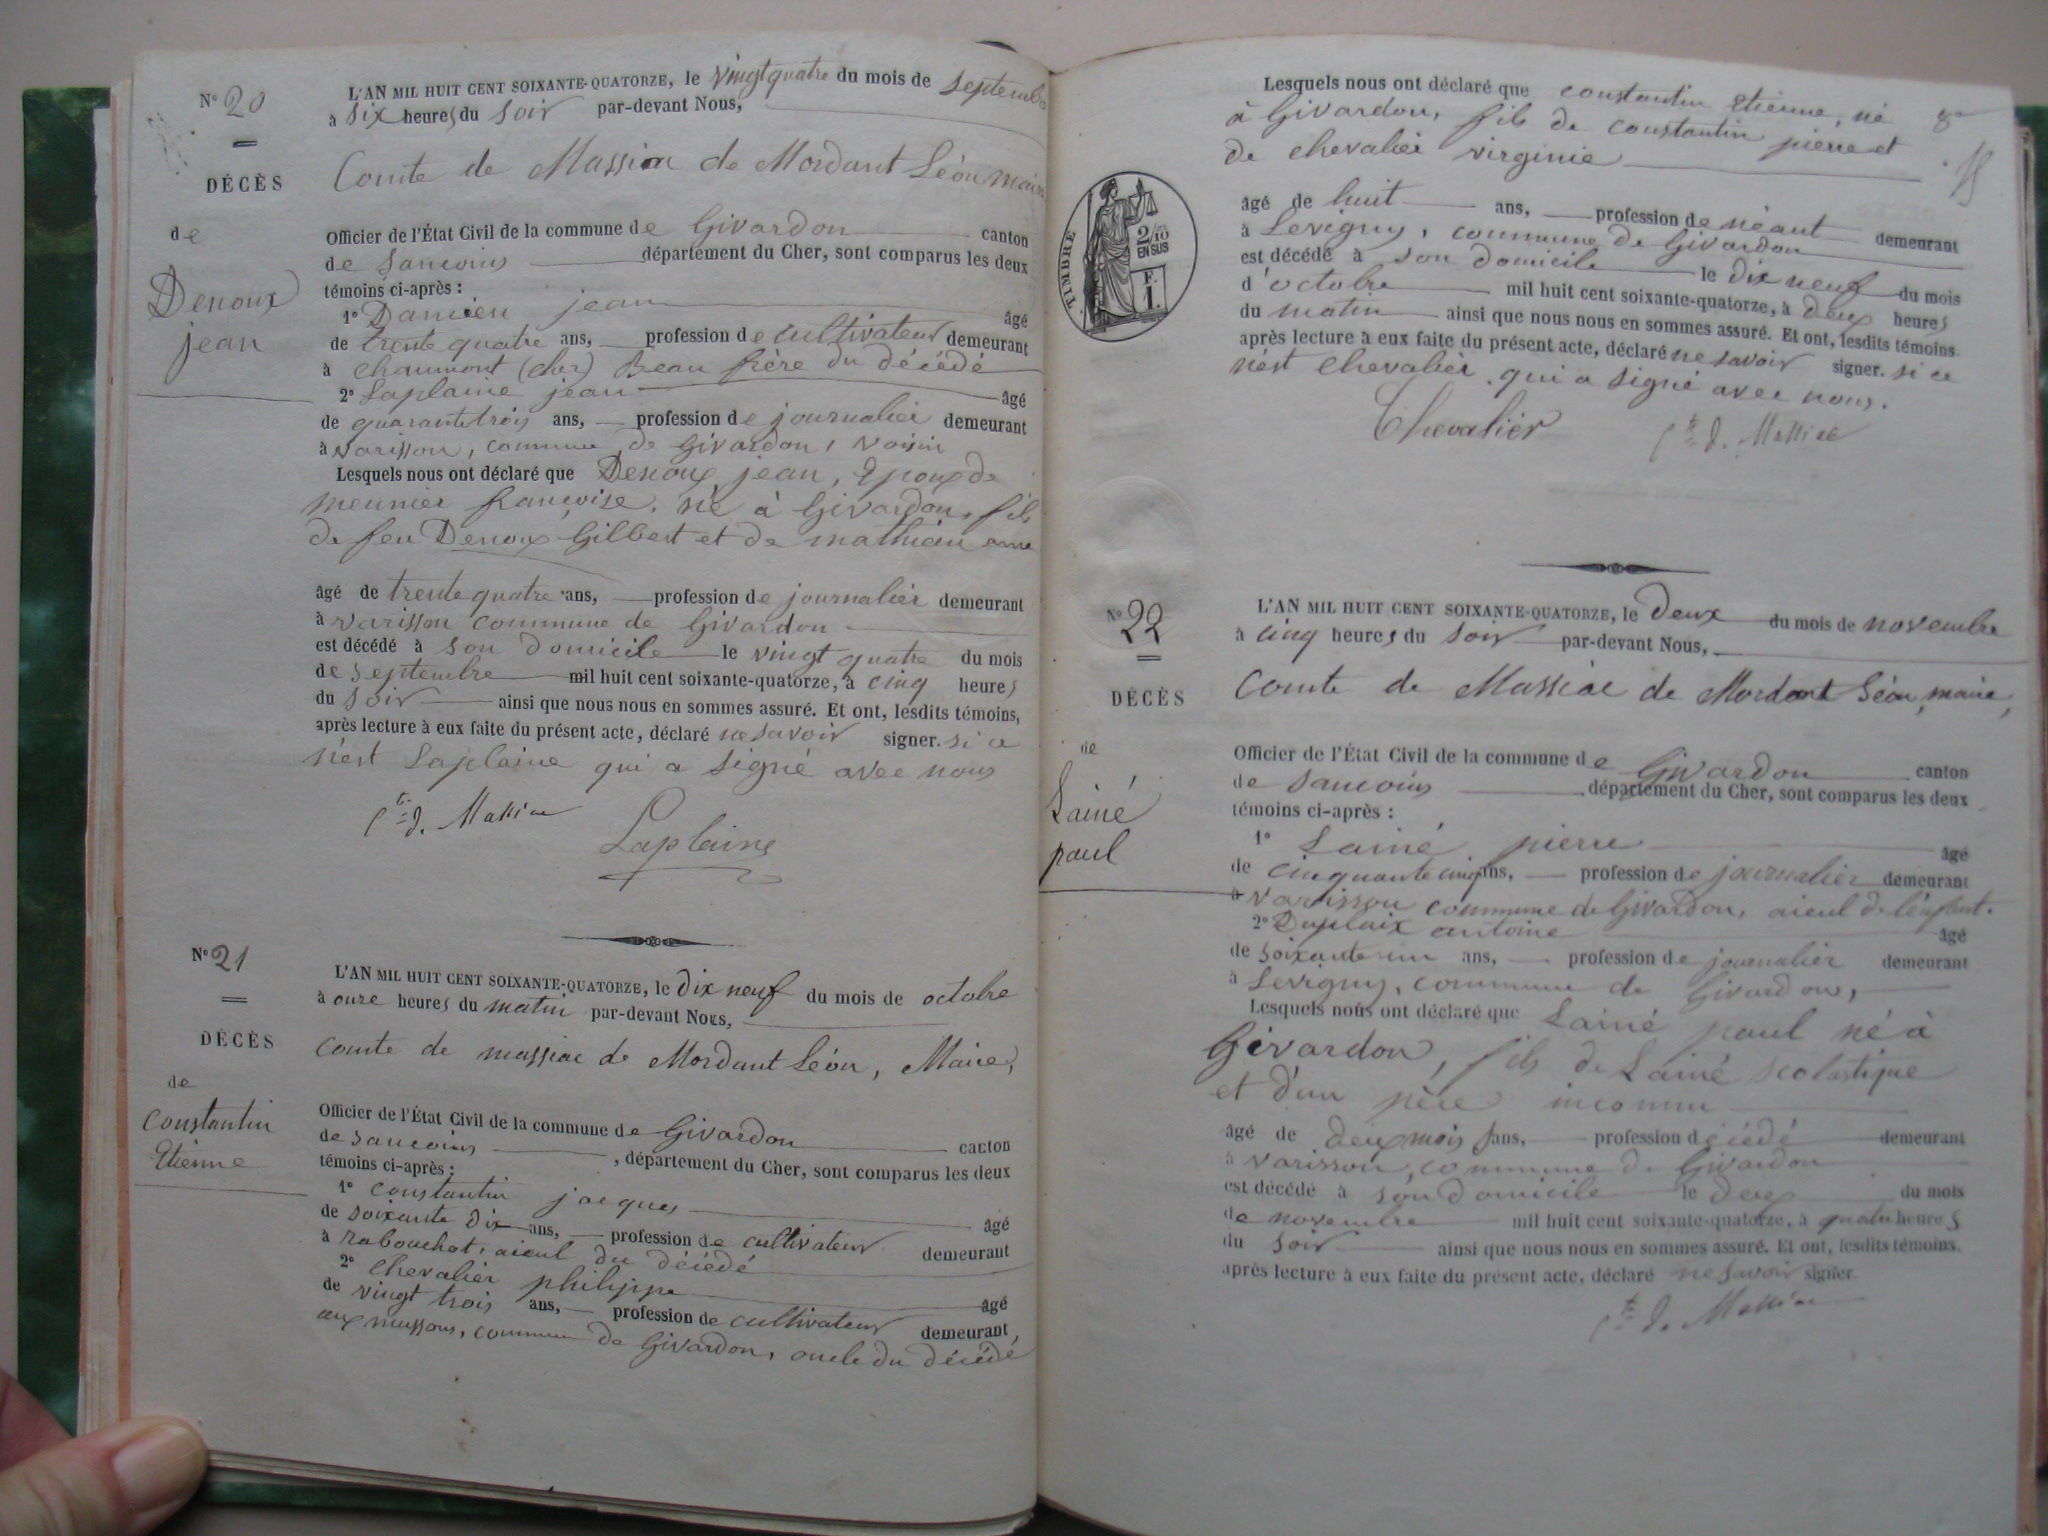 N° 20
DÉCÈS
de
Denoux
jean
L'AN MIL HUIT CENT SOIXANTE-QUATORZE, le vingt quatre du mois de septembre
à six heures du soir par-devant Nous,
Comte de Massiac de Mordant Léon maire
Officier de l'État Civil de la commune de Givardon canton
de sancoins département du Cher, sont comparus les deux
témoins ci-après :
1° Damien jean âgé
de trente quatre ans, profession de cultivateur demeurant
à chaumont (cher) Beau frère du décédé
2° Laplaine jean âgé
de quarante trois ans, profession de journalier demeurant
à varisson, commune de Givardon, voisin
Lesquels nous ont déclaré que Denoux jean, Epoux de
meunier françoise, né à Givardon, fils
de feu Denoux Gilbert et de mathieu anne
âgé de trente quatre ans, profession de journalier demeurant
à varisson commune de Givardon
est décédé à son domicile le vingt quatre du mois
de septembre mil huit cent soixante-quatorze, à cinq heures
du soir ainsi que nous nous en sommes assuré. Et ont, lesdits témoins,
après lecture à eux faite du présent acte, déclaré ne savoir signer. si ce
n'est Laplaine qui a signé avec nous
Cte de Massiac
Laplaine
N° 21
DÉCÈS
de
constantin
Etienne
L'AN MIL HUIT CENT SOIXANTE-QUATORZE, le dix neuf du mois de octobre
à onze heures du matin par-devant Nous,
comte de massiac de Mordant Léon, Maire,
Officier de l'État Civil de la commune de Givardon canton
de sancoins , département du Cher, sont comparus les deux
témoins ci-après :
1° constantin jacques âgé
de soixante dix ans, profession de cultivateur demeurant
à rabouchot, aieul du décédé
2° chevalier philippe âgé
de vingt trois ans, profession de cultivateur demeurant
aux mussons, commune de Givardon, oncle du décédé
Lesquels nous ont déclaré que constantin Etienne, né
à Givardon, fils de constantin pierre et
de chevalier virginie
âgé de huit ans, profession de néant demeurant
à Levigny, commune de Givardon
est décédé à son domicile le dix neuf du mois
d'octobre mil huit cent soixante-quatorze, à deux heures
du matin ainsi que nous nous en sommes assuré. Et ont, lesdits témoins
après lecture à eux faite du présent acte, déclaré ne savoir signer. si ce
n'est chevalier qui a signé avec nous.
Chevalier
Cte de Massiac
TIMBRE
2/10
EN SUS
F.
1.
N° 22
DÉCÈS
de
Lainé
paul
L'AN MIL HUIT CENT SOIXANTE-QUATORZE, le deux du mois de novembre
à cinq heures du soir par-devant Nous,
comte de Massiac de Mordant Léon, maire,
Officier de l'État Civil de la commune de Givardon canton
de sancoins département du Cher, sont comparus les deux
témoins ci-après :
1° Lainé pierre âgé
de cinquante cinq ans, profession de journalier demeurant
à varisson commune de Givardon, aieul de l'enfant.
2° Duplaix antoine âgé
de soixante un ans, profession de journalier demeurant
à Levigny, commune de Givardon,
Lesquels nous ont déclaré que Lainé paul né à
Givardon, fils de Lainé scolastique
et d'un père inconnu
âgé de deux mois ans, profession décédé demeurant
à varisson, commune de Givardon
est décédé à son domicile le deux du mois
de novembre mil huit cent soixante-quatorze, à quatre heures
du soir ainsi que nous nous en sommes assuré. Et ont, lesdits témoins,
après lecture à eux faite du présent acte, déclaré ne savoir signer
Cte de Massiac